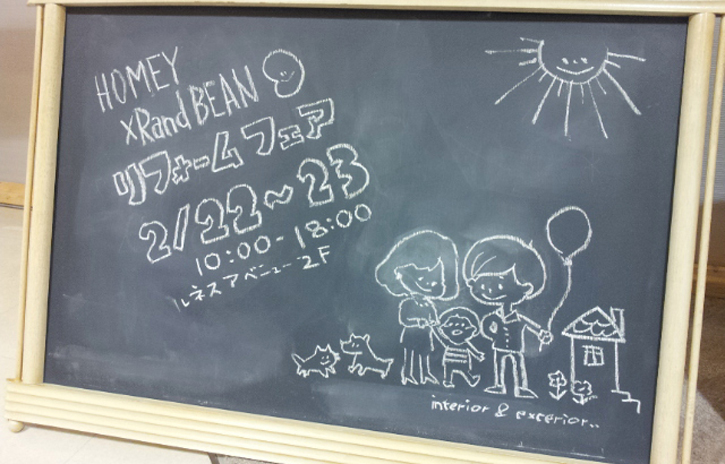 HOMEY
xRandBEAN
リフォームフェア
2/22~23
10:00-18:00
ルネスアベニュー2F
interior & exterior..